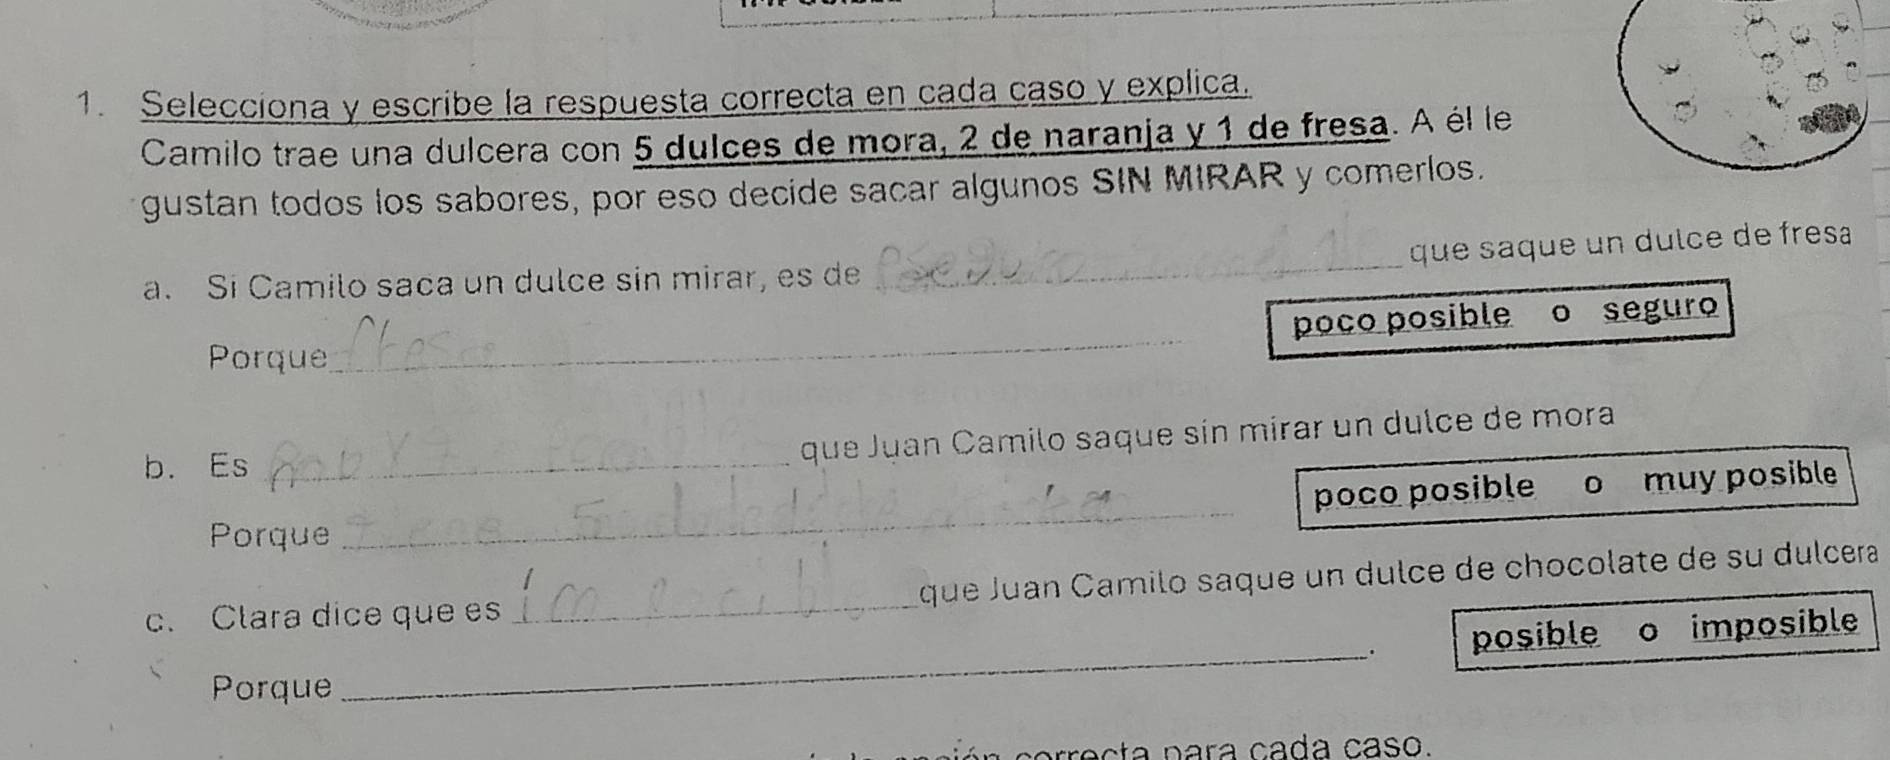 1. Selecciona y escribe la respuesta correcta en cada caso y explica.
Camilo trae una dulcera con 5 dulces de mora, 2 de naranja y 1 de fresa. A él le
gustan todos los sabores, por eso decide sacar algunos SIN MIRAR y comerlos.
a. Si Camilo saca un dulce sin mirar, es de seguro que saque un dulce de fresa
poco posible o seguro
Porque fresa
b. Es que Juan Camilo saque sin mirar un dulce de mora
poco posible o muy posible
Porque tiene 5
c. Clara dice que es imposible que Juan Camilo saque un dulce de chocolate de su dulcera
posible o imposible
Porque .
correcta para cada caso.